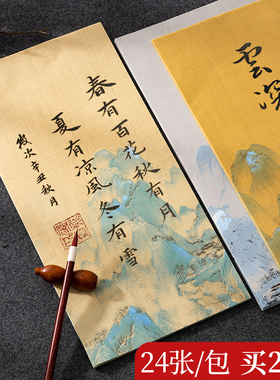 春有百花秋有月
夏有凉风冬有雪
歲次辛丑秋月
雲深
24张/包 买2